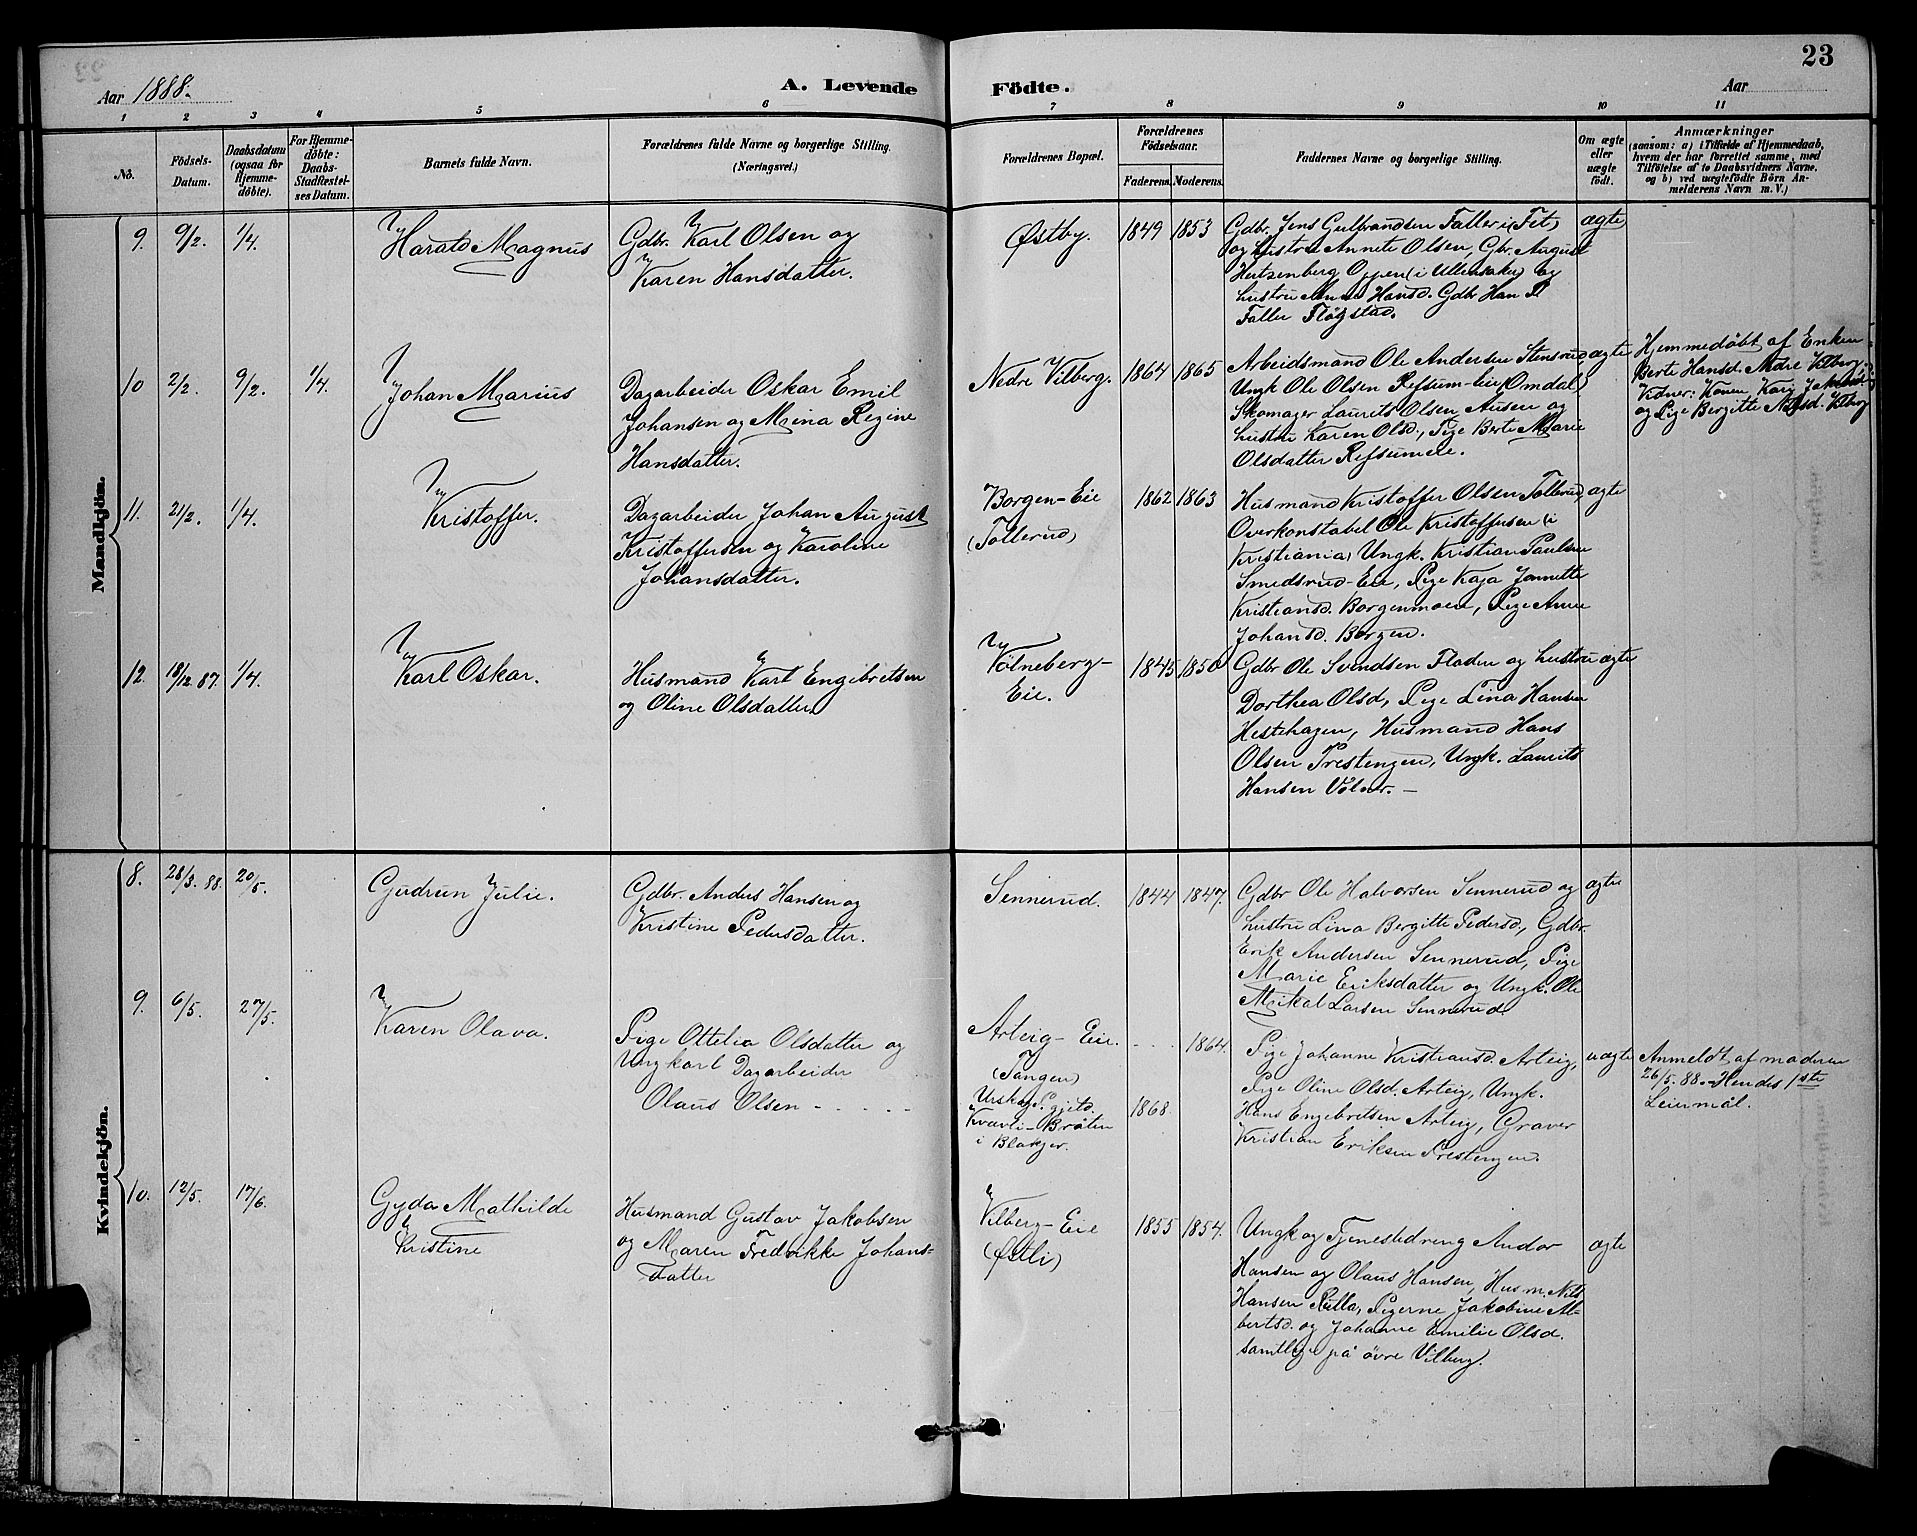 23
Aar 1888.
A. Levende Födte.
Aar
1 2 3 4 5 6 7 8 9 10 11
No.
Födsels-Datum.
Daabsdatum (ogsaa for Hjemme-döbte).
For Hjemme-döbte: Daabs-Stadfæstel-ses Datum.
Barnets fulde Navn.
Forældrenes fulde Navne og borgerlige Stilling. (Næringsvei.)
Forældrenes Bopæl.
Forældrenes Födselsaar.
Faderens. Moderens.
Faddernes Navne og borgerlige Stilling.
Om ægte eller uægte födt.
Anmærkninger
(saasom: a) i Tilfælde af Hjemmedaab,
hvem der har forrettet samme, med
Tilföielse af to Daabsvidners Navne,
og b) ved uægtefödte Börn An-
melderens Navn m. V.)
Mandkjön.
9. 9/2. 1/4. Harald Magnus
Gdbr. Karl Olsen og
Karen Hansdatter.
Østby. 1849 1853
Gdbr. Jens Gulbrandsen Faller i (Fet)
og hustru Annete Olsen, Gbr. August
Hertzenberg Oppen (i Ullensaker) og
hustru Hansd. Gdbr Han P
Faller Fløgstad.
ægte
10 2/2. 9/2. 1/4. Johan Marius
Dagarbeider Oskar Emil
Johansen og Mina Regine
Hansdatter.
Nedre Vilberg. 1864 1865
Arbeidsmand Ole Andersen Stensrud
Ungk Ole Olsen Refsum-Eie (Omdal)
Skomager Laurits Olsen Ausen og
hustru Karen Olsd., Pige Berte Marie
Olsdatter Refsumeie.
ægte
Hjemmedøbt af Enken
Berte Hansd. Nedre Vilberg.
Vidner: Konen Kari Jakobsd.
og Pige Bergitte Nilsd. Vilberg
11. 21/2. 1/4. Kristoffer.
Dagarbeider Johan August
Kristoffersen og Karoline
Johansdatter.
Borgen-Eie
(Tollerud)
1862 1863
Husmand Kristoffer Olsen Tollerud,
Overkonstabel Ole Kristoffersen (i
Kristiania) Ungk. Kristian Paulsen
Smedsrud-Eie, Pige Kaja Jannette
Kristiansd. Borgenmoen, Pige Anne
Johansd. Borgen.
ægte
12. 18/12 87. 1/4. Karl Oskar.
Husmand Karl Engibretsen
og Oline Olsdatter.
Vølneberg-
Eie.
1845 1850
Gdbr Ole Svendsen Fladen og hustru
Dorthea Olsd, Pige Lina Hansen
Hestehagen, Husmand Hans
Olsen Prestengen, Ungk. Laurits
Hansen Vølner. -
ægte
Kvindekjön.
8. 28/3. 88. 20/5. Gudrun Julie.
Gdbr. Anders Hansen og
Kristine Pedersdatter.
Sennerud. 1844 1847.
Gdbr Ole Halvorsen Sennerud og
hustru Lina Bergitte Pedersd, Gdbr.
Erik Andersen Sennerud, Pige
Marie Eriksdatter og Ungk. Ole
Mikal Larsen Sennerud.
ægte
9. 6/5. 27/5. Karen Olava.
Pige Ottelia Olsdatter og
Ungkarl Dagarbeider
Olaus Olsen - - - - -
Arteig-Eie.
(Tangen)
Urskogs Pgjeld.
Kvævli-Bråten
i Blakjer.
- - - 1864.
1868
Pige Johanne Kristiansd. Arteig,
Pige Oline Olsd. Arteig, Ungk.
Hans Engebretsen Arteig, Graver
Kristian Eriksen Prestengen.
uægte
Anmeldt af moderen
26/5. 88. - Hendes 1ste
Leiermål.
10. 12/5. 17/6. Gyda Mathilde
Kristine
Husmand Gustav Jakobsen
og Maren Fredrikke Johans-
datter
Vilberg-Eie
(Østli)
1855 1854.
Ungk og Tjenestedreng Andor
Hansen og Olaus Hansen, Husm. Nils
Hansen Pulla, Pigerne Jakobine Al-
bertsd. og Johanne Emilie Olsd.
samtlige på øvre Vilberg.
ægte